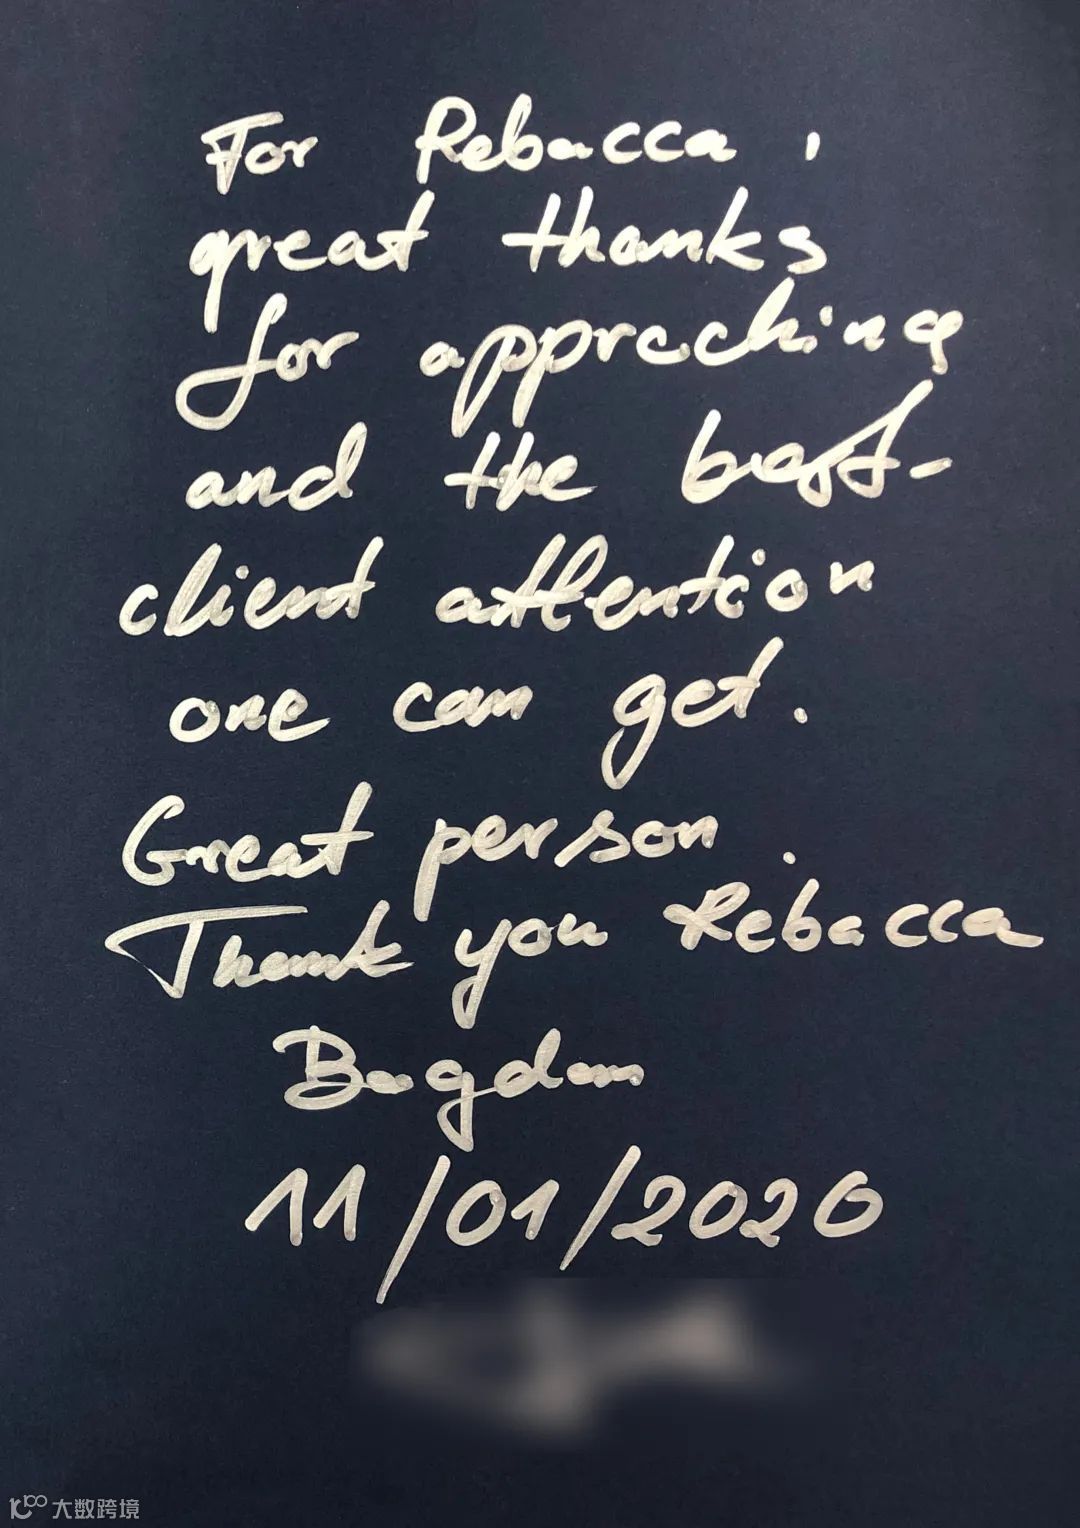 For Rebacca,
great thanks
for appreching
and the best
client attention
one can get.
Great person.
Thank you Rebacca
Bogdan
11/01/2020
大数跨境